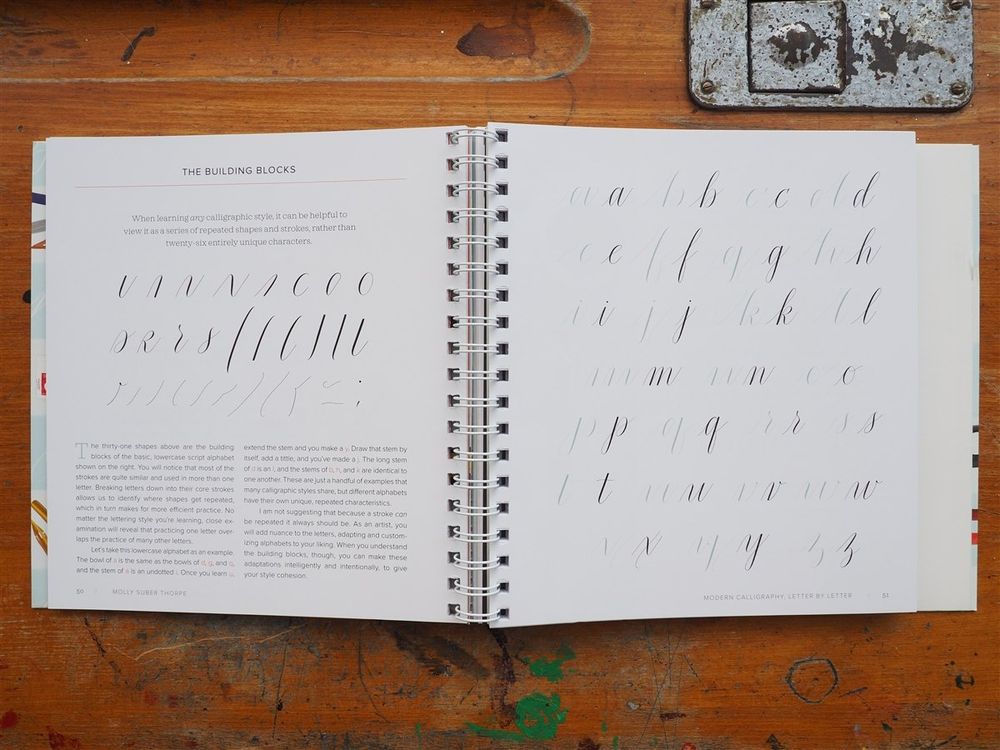 THE BUILDING BLOCKS
When learning any calligraphic style, it can be helpful to
view it as a series of repeated shapes and strokes, rather than
twenty-six entirely unique characters.
The thirty-one shapes above are the building
blocks of the basic, lowercase script alphabet
shown on the right. You will notice that most of the
strokes are quite similar and used in more than one
letter. Breaking letters down into their core strokes
allows us to identify where shapes get repeated,
which in turn makes for more efficient practice. No
matter the lettering style you're learning, close ex-
amination will reveal that practicing one letter over-
laps the practice of many other letters.
Let's take this lowercase alphabet as an example.
The bowl of a is the same as the bowls of d, g, and q,
and the stem of a is an undotted i. Once you learn u,
extend the stem and you make a y. Draw that stem by
itself, add a tittle, and you've made a j. The long stem
of d is an l, and the stems of b, h, and k are identical to
one another. These are just a handful of examples that
many calligraphic styles share, but different alphabets
have their own unique, repeated characteristics.
I am not suggesting that because a stroke can
be repeated it always should be. As an artist, you
will add nuance to the letters, adapting and custom-
izing alphabets to your liking. When you understand
the building blocks, though, you can make these
adaptations intelligently and intentionally, to give
your style cohesion.
50 MOLLY SUBER THORPE
a b c d
e f g h
i j k l
m n o
p q r s
t u v w
x y z
MODERN CALLIGRAPHY, LETTER BY LETTER 51